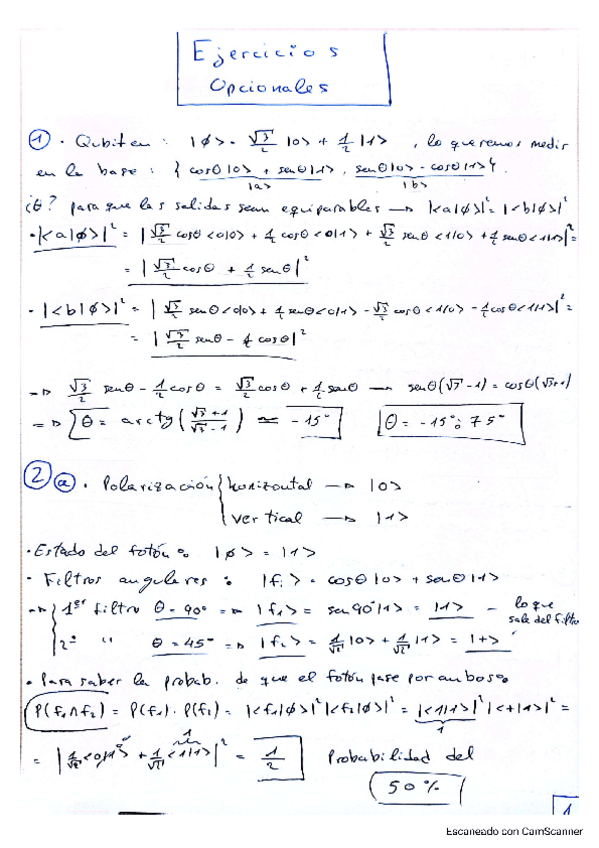 Ejercicios
Opcionales
① · Qubit en : |ϕ> = √3/2 |0> + 1/2 |1> , lo queremos medir
en la base : { cosθ|0> + senθ|1> , senθ|0> - cosθ|1> }.
|a> |b>
¿θ? para que las salidas sean equiparables → |<a|ϕ>|² = |<b|ϕ>|²
· |<a|ϕ>|² = | √3/2 cosθ <0|0> + 1/2 cosθ <0|1> + √3/2 senθ <1|0> + 1/2 senθ <1|1> |² =
= | √3/2 cosθ + 1/2 senθ |²
· |<b|ϕ>|² = | √3/2 senθ <0|0> + 1/2 senθ <0|1> - √3/2 cosθ <1|0> - 1/2 cosθ <1|1> |² =
= | √3/2 senθ - 1/2 cosθ |²
→ √3/2 senθ - 1/2 cosθ = √3/2 cosθ + 1/2 senθ → senθ(√3 - 1) = cosθ(√3+1)
⇒ θ = arctg ( √3+1 / √3-1 ) ≃ -15° θ = -15° ó 75°
② ⓐ · Polarización { horizontal → |0>
vertical → |1>
· Estado del fotón : |ϕ> = |1>
· Filtros angulares : |fi> = cosθ|0> + senθ|1>
→ { 1er filtro θ = 90° ⇒ |f1> = sen90°|1> = |1> - lo que sale del filtro
2° " θ = 45° ⇒ |f2> = 1/√2 |0> + 1/√2 |1> = |+>
· Para saber la probab. de que el fotón pase por ambos :
P(f1∩f2) = P(f1) · P(f2) = |<f1|ϕ>|² |<f2|ϕ>|² = |<1|1>|² |<+|1>|² =
1
= | 1/√2 <0|1> + 1/√2 <1|1> |² = 1/2 Probabilidad del
50%
1
Escaneado con CamScanner